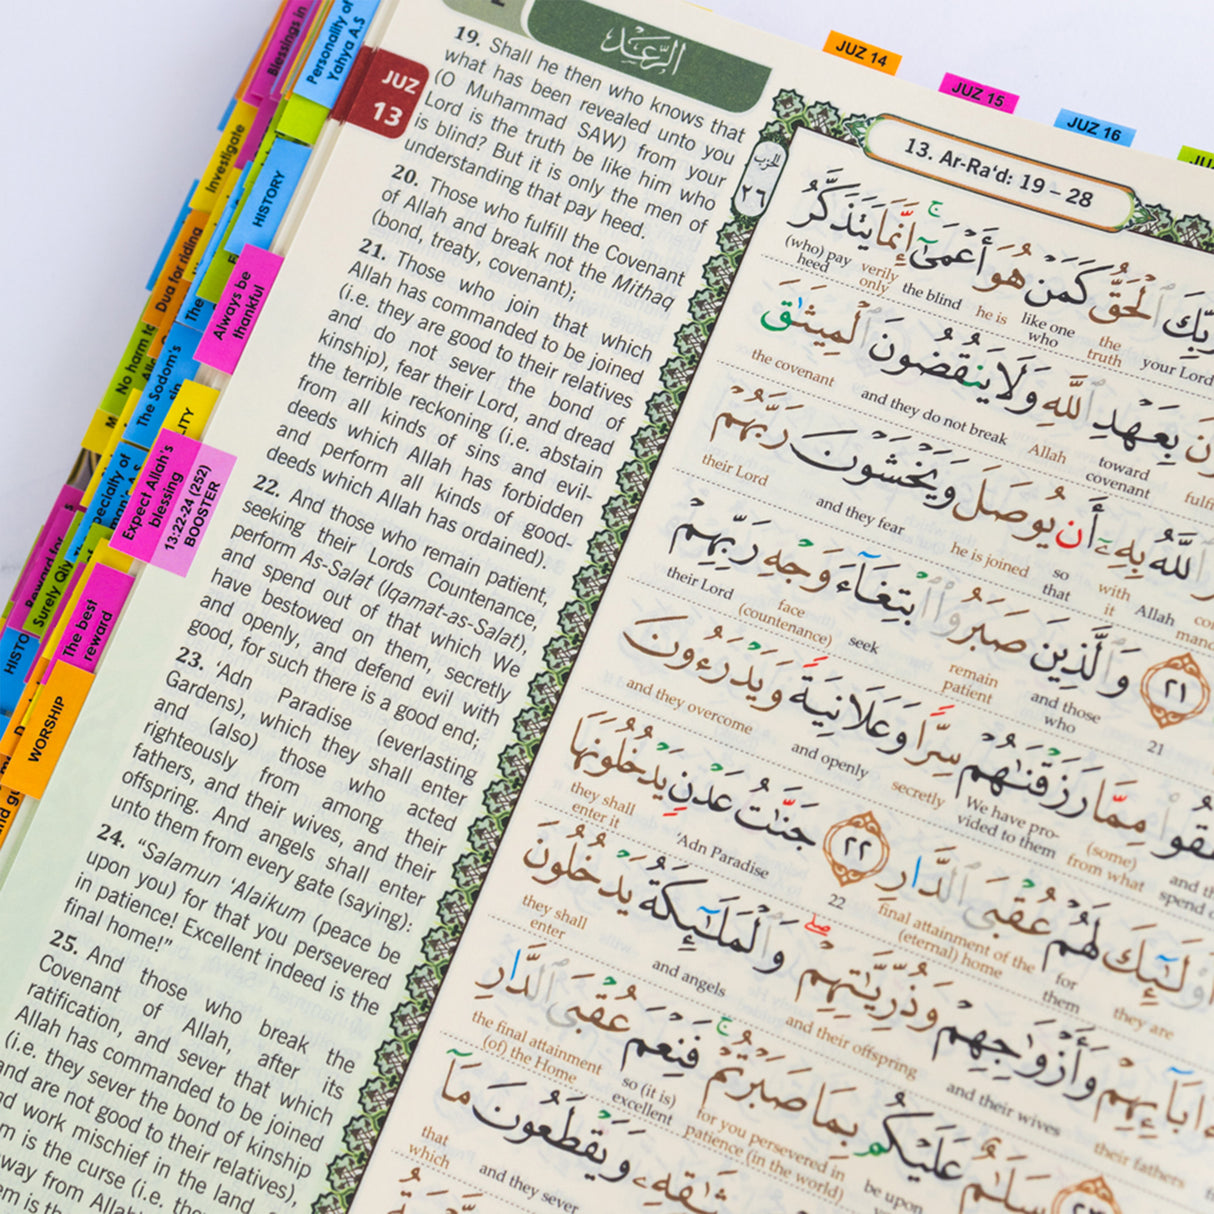 Blessings in
Personality of
Yahya A.S
Investigate
HISTORY
Dua for riding
The
Always be
thankful
No harm to
The Sodom's
sin
LITY
Expect Allah's
blessing
13:22-24 (252)
BOOSTER
Surely Qiy
The best
reward
HISTO
WORSHIP
JUZ
13
الرعد
JUZ 14
JUZ 15
JUZ 16
19. Shall he then who knows that
what has been revealed unto you
(O Muhammad SAW) from your
Lord is the truth be like him who
is blind? But it is only the men of
understanding that pay heed.
20. Those who fulfill the Covenant
of Allah and break not the Mithaq
(bond, treaty, covenant);
21. Those who join that which
Allah has commanded to be joined
(i.e. they are good to their relatives
and do not sever the bond of
kinship), fear their Lord, and dread
the terrible reckoning (i.e. abstain
from all kinds of sins and evil-
deeds which Allah has forbidden
and perform all kinds of good-
deeds which Allah has ordained).
22. And those who remain patient,
seeking their Lords Countenance,
perform As-Salat (Iqamat-as-Salat),
and spend out of that which We
have bestowed on them, secretly
and openly, and defend evil with
good, for such there is a good end;
23. 'Adn Paradise (everlasting
Gardens), which they shall enter
and (also) those who acted
righteously from among their
fathers, and their wives, and their
offspring. And angels shall enter
unto them from every gate (saying):
24. "Salamun 'Alaikum (peace be
upon you) for that you persevered
in patience! Excellent indeed is the
final home!"
25. And those who break the
Covenant of Allah, after its
ratification, and sever that which
Allah has commanded to be joined
(i.e. they sever the bond of kinship
and are not good to their relatives),
work mischief in the land,
is the curse (i.e.
away from Allah
الحزب
٢٦
13. Ar-Ra'd: 19 – 28
رَبِّكَ ٱلْحَقُّ كَمَنْ هُوَ أَعْمَىٰٓ ۚ إِنَّمَا يَتَذَكَّرُ
your Lord the truth like one who he is the blind verily only (who) pay heed
بِعَهْدِ ٱللَّهِ وَلَا يَنقُضُونَ ٱلْمِيثَٰقَ
toward covenant Allah and they do not break the covenant
ٱللَّهُ بِهِۦٓ أَن يُوصَلَ وَيَخْشَوْنَ رَبَّهُمْ
Allah with it so that he is joined and they fear their Lord
٢١ وَٱلَّذِينَ صَبَرُوا۟ ٱبْتِغَآءَ وَجْهِ رَبِّهِمْ
21 and those who remain patient seek face (countenance) their Lord
مِمَّا رَزَقْنَٰهُمْ سِرًّا وَعَلَانِيَةً وَيَدْرَءُونَ
(some) from what We have pro-vided to them secretly and openly and they overcome
أُو۟لَٰٓئِكَ لَهُمْ عُقْبَى ٱلدَّارِ ٢٢ جَنَّٰتُ عَدْنٍ يَدْخُلُونَهَا
they are for them final attainment of the (eternal) home 22 'Adn Paradise they shall enter it
ءَابَآئِهِمْ وَأَزْوَٰجِهِمْ وَذُرِّيَّٰتِهِمْ ۖ وَٱلْمَلَٰٓئِكَةُ يَدْخُلُونَ
their fathers and their wives and their offspring and angels they shall enter
سَلَٰمٌ عَلَيْكُم بِمَا صَبَرْتُمْ ۚ فَنِعْمَ عُقْبَى ٱلدَّارِ
be upon for you persevered in patience (in the world) so (it is) excellent the final attainment (of) the Home
مِيثَٰقِهِۦ وَيَقْطَعُونَ مَآ
and they sever that which